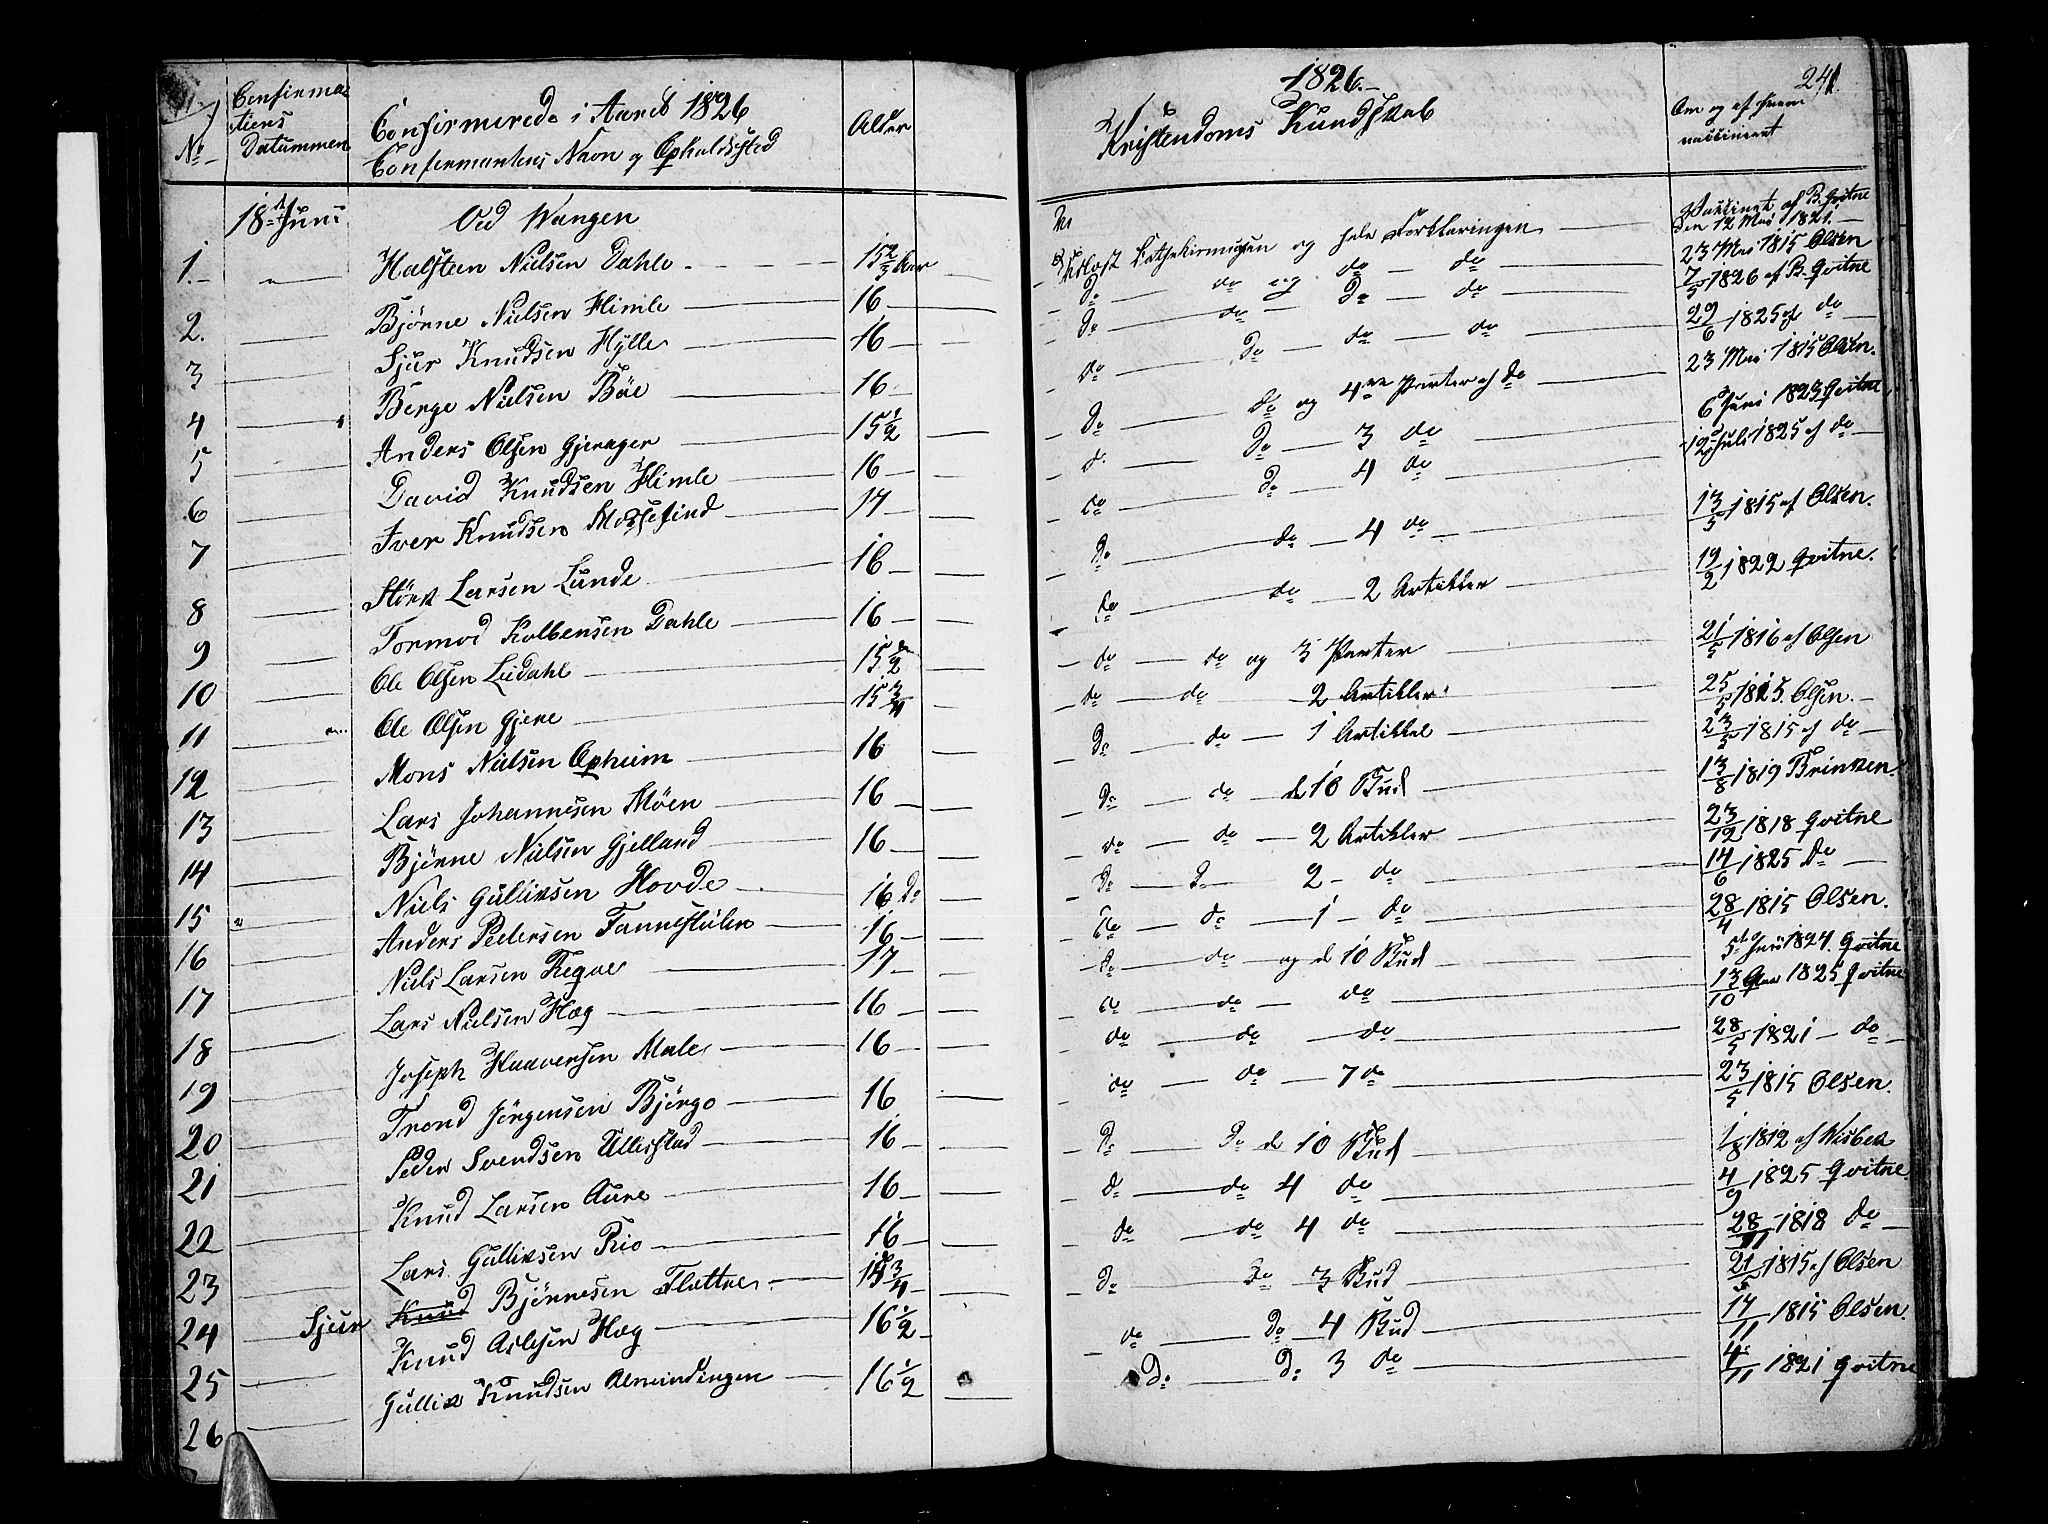 Confirma-
tions
Datummen
No
Confirmerede i Aaret 1826
Confirmantens Navn og Opholdssted
Alder
18de Juni
Ved Wangen
1. Halsten Nielsen Dahle 15 2/3 Aar
2. Bjørne Nielsen Himle 16
3 Sjur Knudsen Hylle 16
4 Berge Nielsen Bøe 16
5 Anders Olsen Gjerager 15 1/2
6 David Knudsen Himle 16
7 Iver Knudsen 17
8 Størk Larsen Lunde 16
9 Tormod Kolbensen Dahle 16
10 Ole Olsen Lidahl 15 1/2
11 Ole Olsen Gjere 15 3/4
12 Mons Nielsen Opheim 16
13 Lars Johannesen Møen 16
14 Bjørne Nielsen Gjelland 16
15 Niels Gulliksen Hovde 16 do
16 Anders Pedersen 16
17 Niels Larsen 17
18 Lars Nielsen Hæg 16
19 Joseph Haaversen Male 16
20 Trond Jørgensen Bjørgo 16
21 Peder Svendsen Ullestad 16
22 Knud Larsen Aure 16
23 Lars Gulliksen Rio 16
24 Sjur Knud Bjørnesen Flatte 3/4
25 Knud Hæg 16 1/2
26 Gullik Knudsen Almindingen 16 1/2
1826.
241.
Kristendoms Kundskab
Om og af hvem
vaccineret
Vaccineret af B. Qvitne
den 12 Mai 1821.
Udlæst Cathekismusen og hele Forklaringen 23 Mai 1815 Olsen
do do og do do 7/5 1826 af B. Qvitne
do do do do 29/6 1825 af do
do do do do 23 Mai 1815 Olsen.
do do og 4re Parter af do 6 Juni 1823 Qvitne
do do 3 do 12 Juli 1825 af do
do do 4 do
do do 4 do 13/5 1815 af Olsen.
do do 2 Artikler 19/2 1822 Qvitne.
do do og 3 Parter 21/5 1816 af Olsen
do do 2 Artikler 25/5 1815. Olsen.
do do 1 Artikkel 23/5 1815 af do
do do de 10 Bud 13/8 1819 Brinken.
do do 2 Artikler 23/12 1818 Qvitne
do do 2 do 14/6 1825 do
do do 1 do 28/4 1815 Olsen.
do do og de 10 Bud 5te 1824. Qvitne
do do do 13/10 1825 Qvitne
do do do 28/5 1821 do
do do 7 do 23/5 1815 Olsen.
do do de 10 Bud 1/8 1812 af Wisbek
do do 4 do 4/9 1825 Qvitne
do do 4 do 28/11 1818 do
do do 3 Bud 21/5 1815 af Olsen
do do 4 Bud 17/11 1815 Olsen.
do do 3 do 4/11 1821 Qvitne